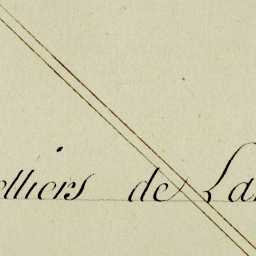 olliers de La